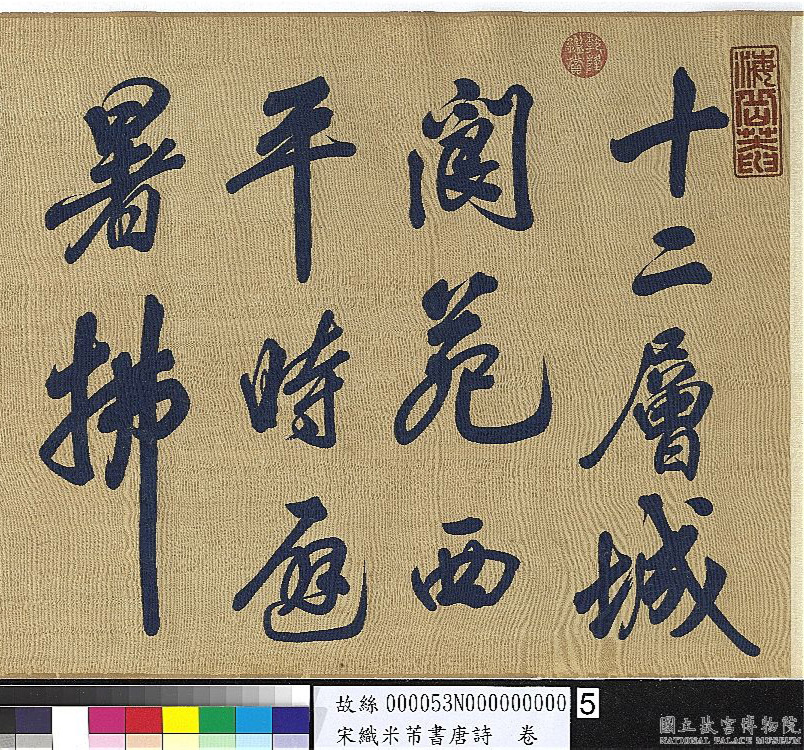 十二層城
閬苑西
平時避
暑拂
故絲000053N000000000 5
宋織米芾書唐詩 卷
國立故宮博物院
NATIONAL PALACE MUSEUM